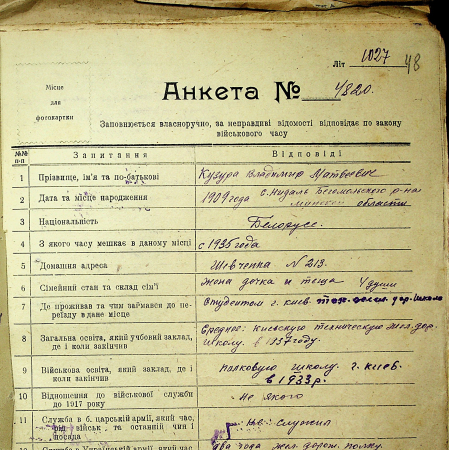 Літ 1027
48
Місце
для
фотокартки
Анкета № 4820.
Заповнюється власноручно, за неправдиві відомості відповідає по закону
військового часу
№№ п-п
Запитання
Відповіді
1 Прізвище, ім'я та по-батькові Кузура Владимир Матвеевич
2 Дата та місце народження 1909 года с.
области
3 Національність Белорусс.
4 З якого часу мешкає в даному місці с 1935 года
5 Домашня адреса Шевченка N 213.
6 Сімейний стан та склад сім'ї жена дочка и теща 4 души
7 Де проживав та чим займався до пе-
реїзду в дане місце
Студентом г. киев
8 Загальна освіта, який учбовий заклад,
де і коли закінчив
Среднее: киевскую техническую жел. дор.
школу. в 1937 году.
9 Військова освіта, який заклад, де і
коли закінчив
полковую школу. г. киев.
в 1933 р.
10 Відношення до військової служби
до 1917 року
Не якого
11 Служба в б. царській армії, який час,
рід військ, та останній чин і
посада
Не служил
Служба в Українській армії, який час
два года жел. дорож. полку.